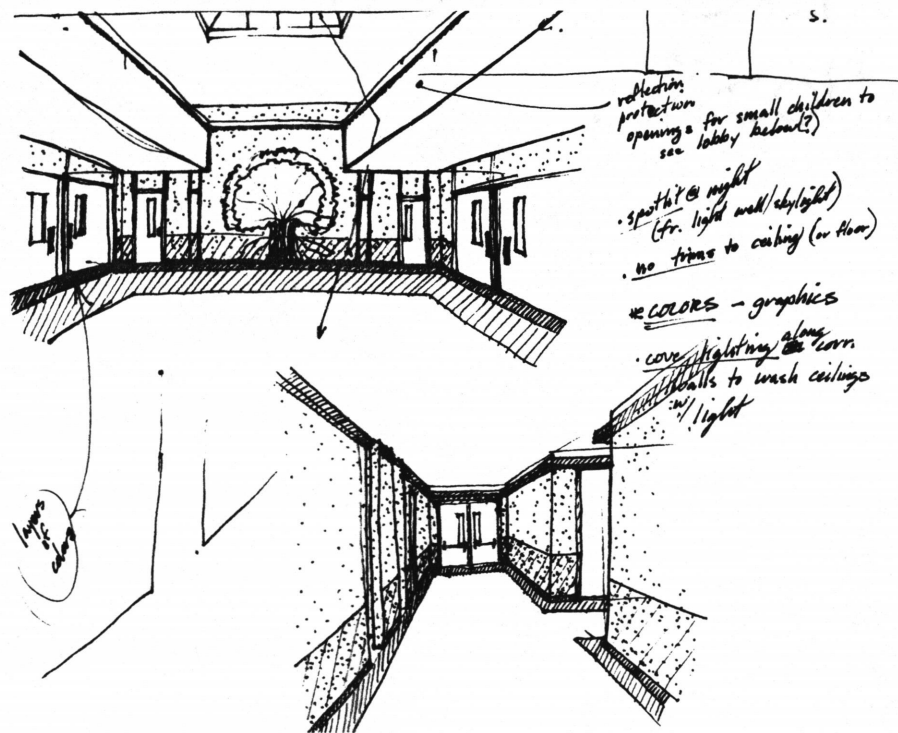 s.
reflection
protection
openings for small children to
see lobby below?)
· spotlit @ night
(fr. light well/skylight)
· no trims to ceiling (or floor)
* COLORS - graphics
· cove lighting along corr.
walls to wash ceilings
w/ light
layers
of
colors